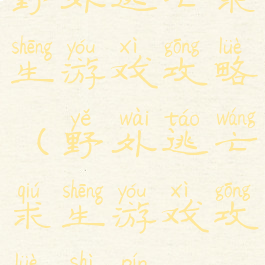 野外逃亡求
shēng yóu xì gōng lüè
生游戏攻略
yě wài táo wáng
（野外逃亡
qiú shēng yóu xì gōng
求生游戏攻
lüè shì pín